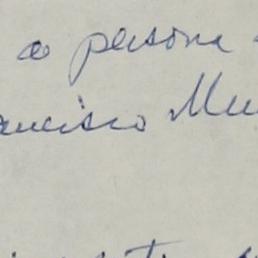 a persona
ancisco Mu